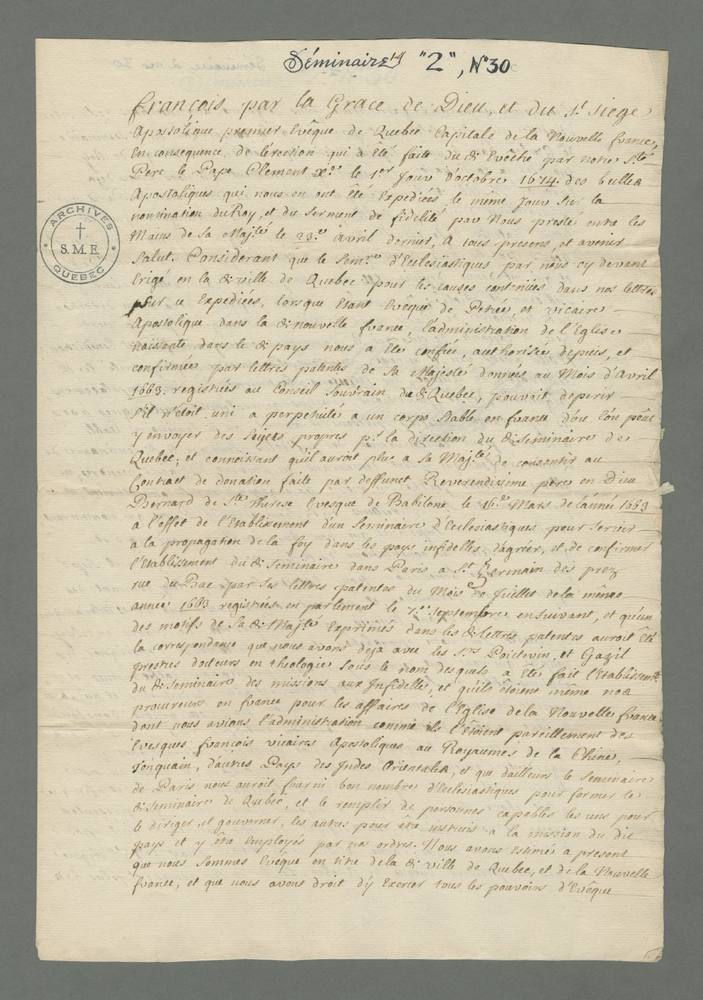 Séminaire "2", N° 30
François par la Grace de Dieu, et du St Siege
Apostolique premier Evêque de Quebec Capitale de la Nouvelle france,
En consequence de l'erection qui a été faite du dt Evêché par notre St
Pere le Pape Clement Xe le 1er Jour d'octobre 1674. des bulles
Apostoliques qui nous en ont été Expediées le même Jour sur la
nomination du Roy, et du Serment de fidelité par Nous presté entre les
Mains de Sa Majté le 23e Avril dernier, A tous presens et avenir
Salut. Considerant que le Semre d'Eclesiastiques par nous cy devant
Erigé en la dt ville de Quebec pour les causes contenües dans nos lettres
Sur ce Expediées, lorsque Etant Evêque de Petrée, et vicaire
Apostolique dans la dt nouvelle france, l'administration de l'Eglise
naissante dans le dt pays nous a été confiée, authorisée depuis, et
confirmée par lettres patentes de Sa Majesté données au Mois d'Avril
1663. registrées au Conseil Souvrain du dt Quebec, pouvoit deperir
S'il n'étoit uni a perpetuité a un corps Stable en france d'où l'on pût
y envoyer des Sujets propres pr la direction du dt Seminaire de
Quebec; et connoissant qu'il auroit plu a Sa Majté de consentir au
Contract de donation faite par deffunct Reverendissime pere en Dieu
Bernard de Ste Therese Evesque de Babilone le 16e Mars de l'année 1663
à l'effet de l'Etablissement d'un Seminaire d'Eclesiastiques pour Servir
a la propagation de la foy dans les pays infidelles, d'agréer, et de confirmer
l'Etablissement du dt Seminaire dans Paris a St Germain des prez
rue du Bac par Ses lettres patentes du Mois de Juillet de la meme
année 1663 registrées en parlement le 7e Septembre ensuivant, et qu'un
des motifs de Sa dt Majté Exprimés dans les dt lettres patentes auroit été
la correspondence que nous avons deja avec les Srs Poictevin, et Gazil
prestres docteurs en theologie Sous le nom desquels a été fait l'Etablissemt
du dt Seminaire des missions aux Infidelles, et qu'ils étoient même nos
procureurs en france pour les affaires de l'Eglise de la Nouvelle france
dont nous avions l'administration comme ils l'étoient pareillement des
Evesques françois vicaires Apostoliques au Royaumes de la Chine,
Tonquain, d'autres Pays des Indes Orientales, et que d'ailleurs le Seminaire
de Paris nous auroit fourni bon nombre d'Eclesiastiques pour former le
dt Seminaire de Quebec, et le remplir de personnes capables les uns pour
le diriger, et gouverner, les autres pour être instruis a la mission du dit
pays et y être Employés par nos ordres. Nous avons Estimé a present
que nous Sommes Evêque en titre de la dt ville de Quebec, et de la Nouvelle
france, et que nous avons droit d'y Exercer tous les pouvoirs d'Evêque
ARCHIVES
S.M.E.
QUEBEC